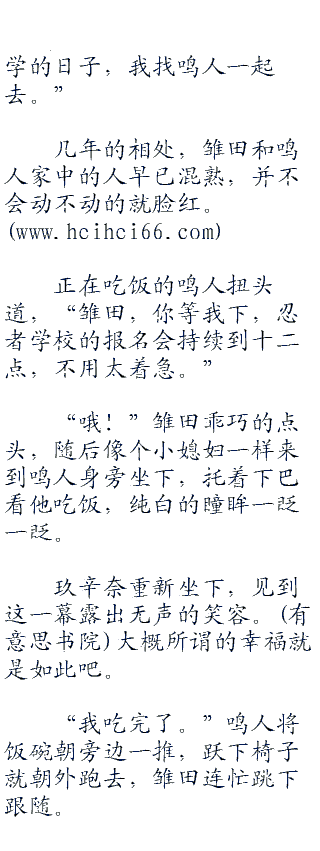 学的日子，我找鸣人一起
去。”
几年的相处，雏田和鸣
人家中的人早已混熟，并不
会动不动的就脸红。
(www.hcihci66.com)
正在吃饭的鸣人扭头
道，“雏田，你等我下，忍
者学校的报名会持续到十二
点，不用太着急。”
“哦！”雏田乖巧的点
头，随后像个小媳妇一样来
到鸣人身旁坐下，托着下巴
看他吃饭，纯白的瞳眸一眨
一眨。
玖辛奈重新坐下，见到
这一幕露出无声的笑容。(有
意思书院)大概所谓的幸福就
是如此吧。
“我吃完了。”鸣人将
饭碗朝旁边一推，跃下椅子
就朝外跑去，雏田连忙跳下
跟随。